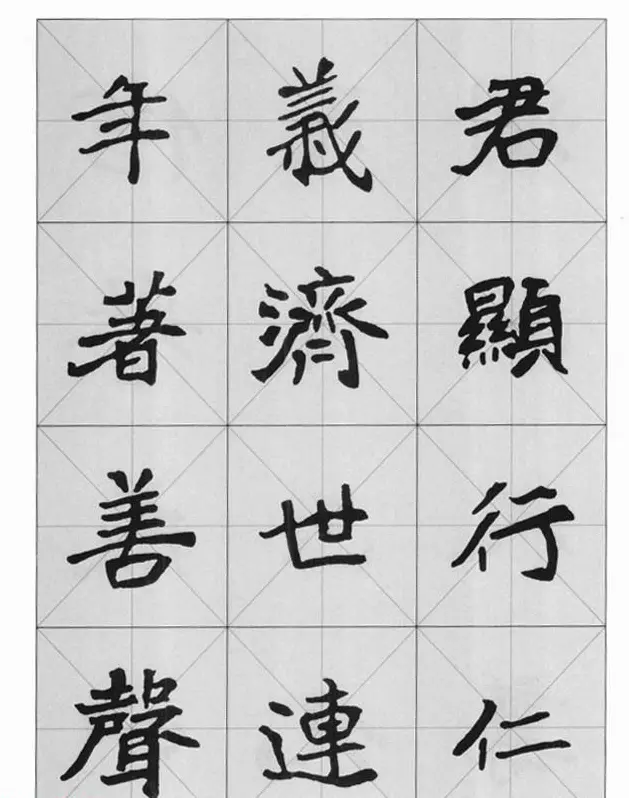 君顯行仁
義濟世連
年著善聲